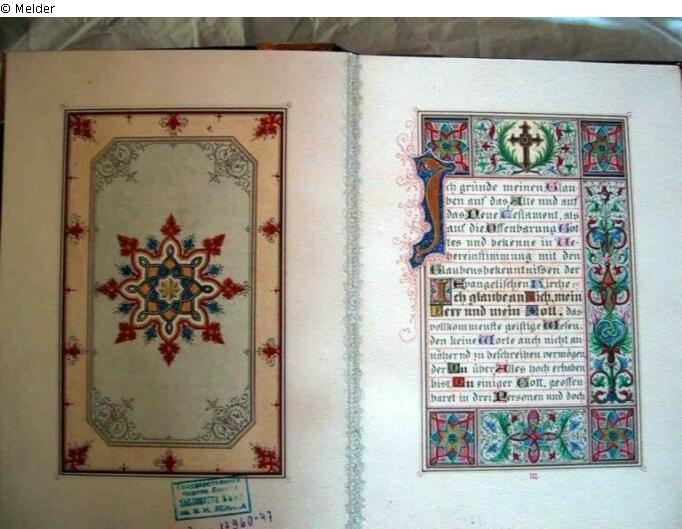 © Melder
Ich gründe meinen Glau
ben auf das Alte und auf
das Neue Testament, als
auf die Offenbarung Got
tes und bekenne in Ue
bereinstimmung mit den
Glaubensbekenntnissen der
Evangelischen Kirche:
Ich glaube an Dich, mein
Herr und mein Gott, das
vollkommenste geistige Wesen,
den keine Worte auch nicht an
nähernd zu beschreiben vermögen,
der Du über Alles hoch erhaben
bist, Du einiger Gott, geoffen
baret in drei Personen und doch
III.
Государственная
ордена Ленина
БИБЛИОТЕКА СССР
им. В. И. ЛЕНИНА
17960-47